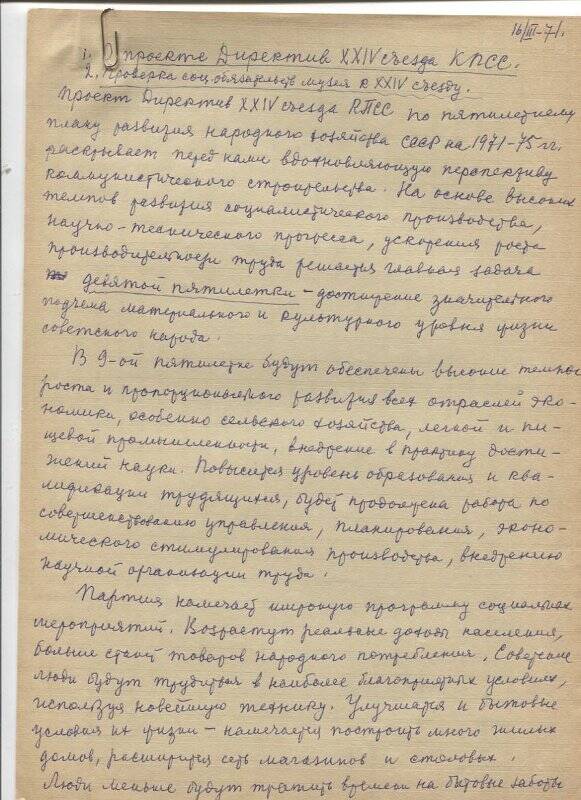 16/III-71.
1. О проекте Директив XXIV съезда КПСС.
2. Проверка соц. обязательств музея к XXIV съезду.
Проект Директив XXIV съезда КПСС по пятилетнему
плану развития народного хозяйства СССР на 1971-75 гг.
раскрывает перед нами вдохновляющую перспективу
коммунистического строительства. На основе высоких
темпов развития социалистического производства,
научно-технического прогресса, ускорения роста
производительности труда решается главная задача
девятой пятилетки – достижение значительного
подъема материального и культурного уровня жизни
советского народа.
В 9-ой пятилетке будут обеспечены высокие темпы
роста и пропорционального развития всех отраслей эко-
номики, особенно сельского хозяйства, легкой и пи-
щевой промышленности, внедрение в практику дости-
жений науки. Повысится уровень образования и ква-
лификации трудящихся, будет продолжена работа по
совершенствованию управления, планирования, эконо-
мического стимулирования производства, внедрению
научной организации труда.
Партия намечает широкую программу социальных
мероприятий. Возрастут реальные доходы населения,
больше станет товаров народного потребления. Советские
люди будут трудиться в наиболее благоприятных условиях,
используя новейшую технику. Улучшатся и бытовые
условия их жизни – намечается построить много жилых
домов, расширится сеть магазинов и столовых.
Люди меньше будут тратить времени на бытовые заботы